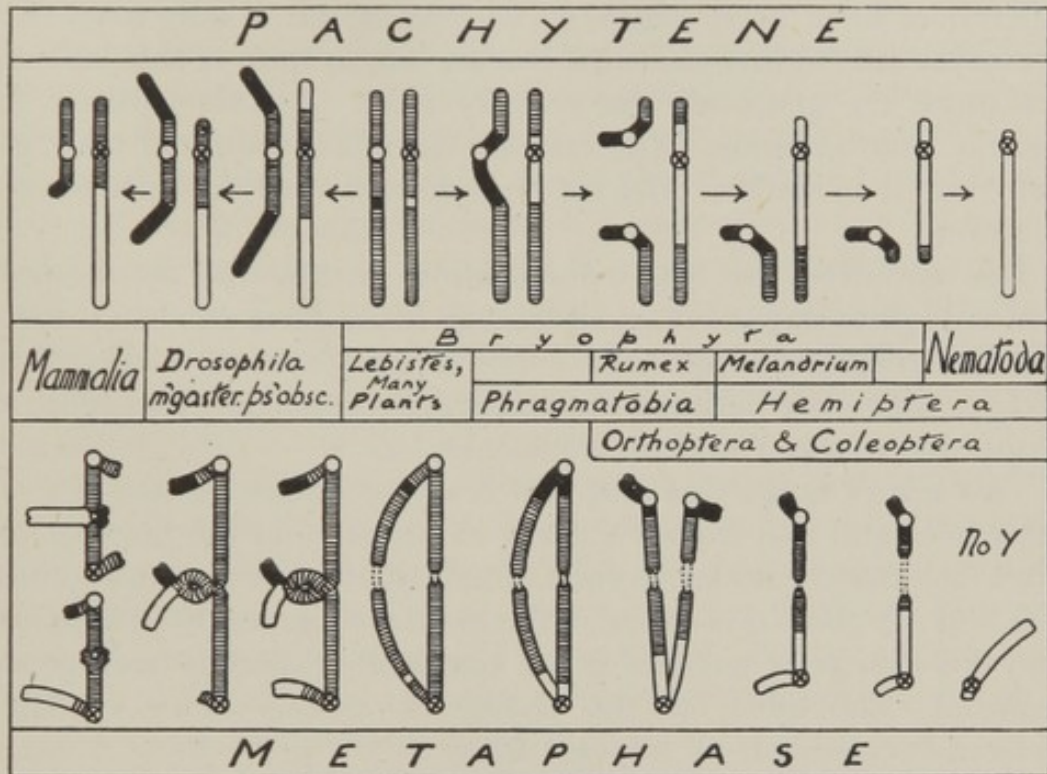 PACHYTENE
Bryophyta
Mammalia
Drosophila
m'gaster. ps'obsc.
Lebistes,
Many
Plants
Rumex
Melandrium
Nematoda
Phragmatobia
Hemiptera
Orthoptera & Coleoptera
no Y
METAPHASE